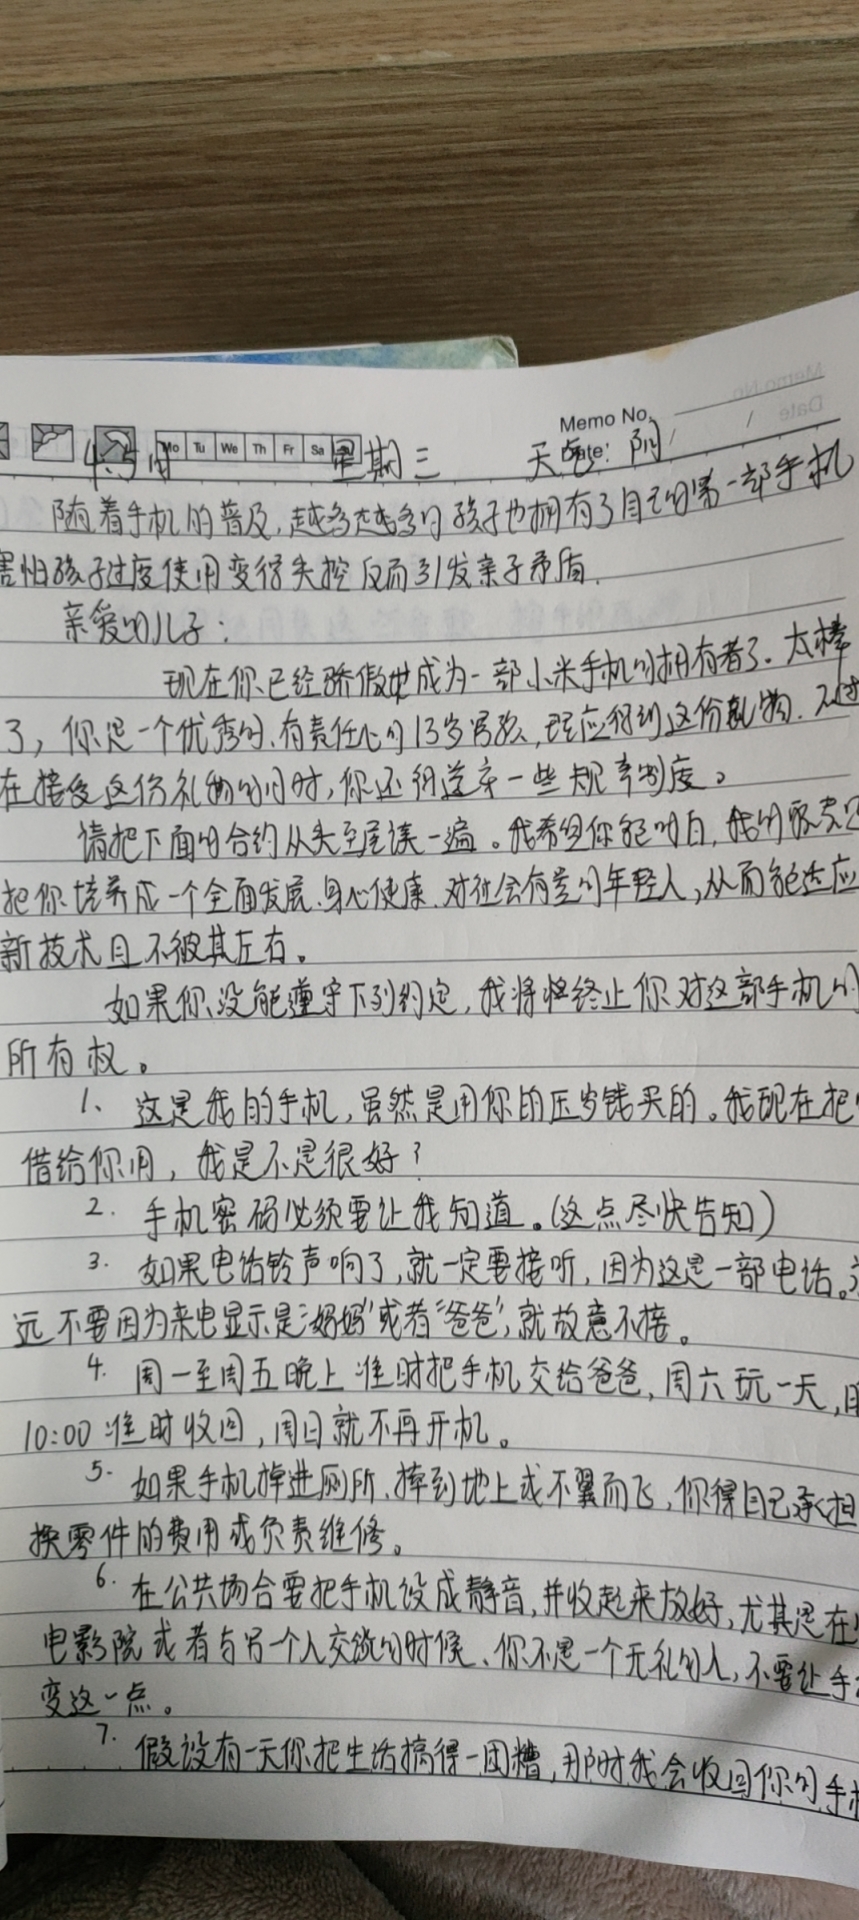 Memo No.
Mo Tu We Th Fr Sa
Date: / /
4.5日 星期三 天气: 阴
随着手机的普及,越多越多的孩子也拥有了自己的第一部手机
害怕孩子过度使用变得失控反而引发亲子矛盾.
亲爱的儿子:
现在你已经骄傲地成为一部小米手机的拥有者了。太棒
了,你是一个优秀的、有责任心的13岁男孩,理应得到这份礼物.不过
在接受这份礼物的同时,你还得遵守一些规章制度。
请把下面的合约从头至尾读一遍。我希望你能明白,我的职责是
把你培养成一个全面发展、身心健康、对社会有益的年轻人,从而能适应
新技术且不被其左右。
如果你没能遵守下列约定,我将将终止你对这部手机的
所有权。
1、这是我的手机,虽然是用你的压岁钱买的。我现在把
借给你用,我是不是很好?
2. 手机密码必须要让我知道。(这点尽快告知)
3. 如果电话铃声响了,就一定要接听,因为这是一部电话。
远不要因为来电显示是“妈妈”或者“爸爸”,就故意不接。
4. 周一至周五晚上准时把手机交给爸爸,周六玩一天,
10:00准时收回,周日就不再开机。
5. 如果手机掉进厕所、摔到地上或不翼而飞,你得自己承担
换零件的费用或负责维修。
6. 在公共场合要把手机设成静音,并收起来放好,尤其是在
电影院或者与另一个人交谈的时候、你不是一个无礼的人,不要让手
变这一点。
7. 假设有一天你把生活搞得一团糟,那时我会收回你的手